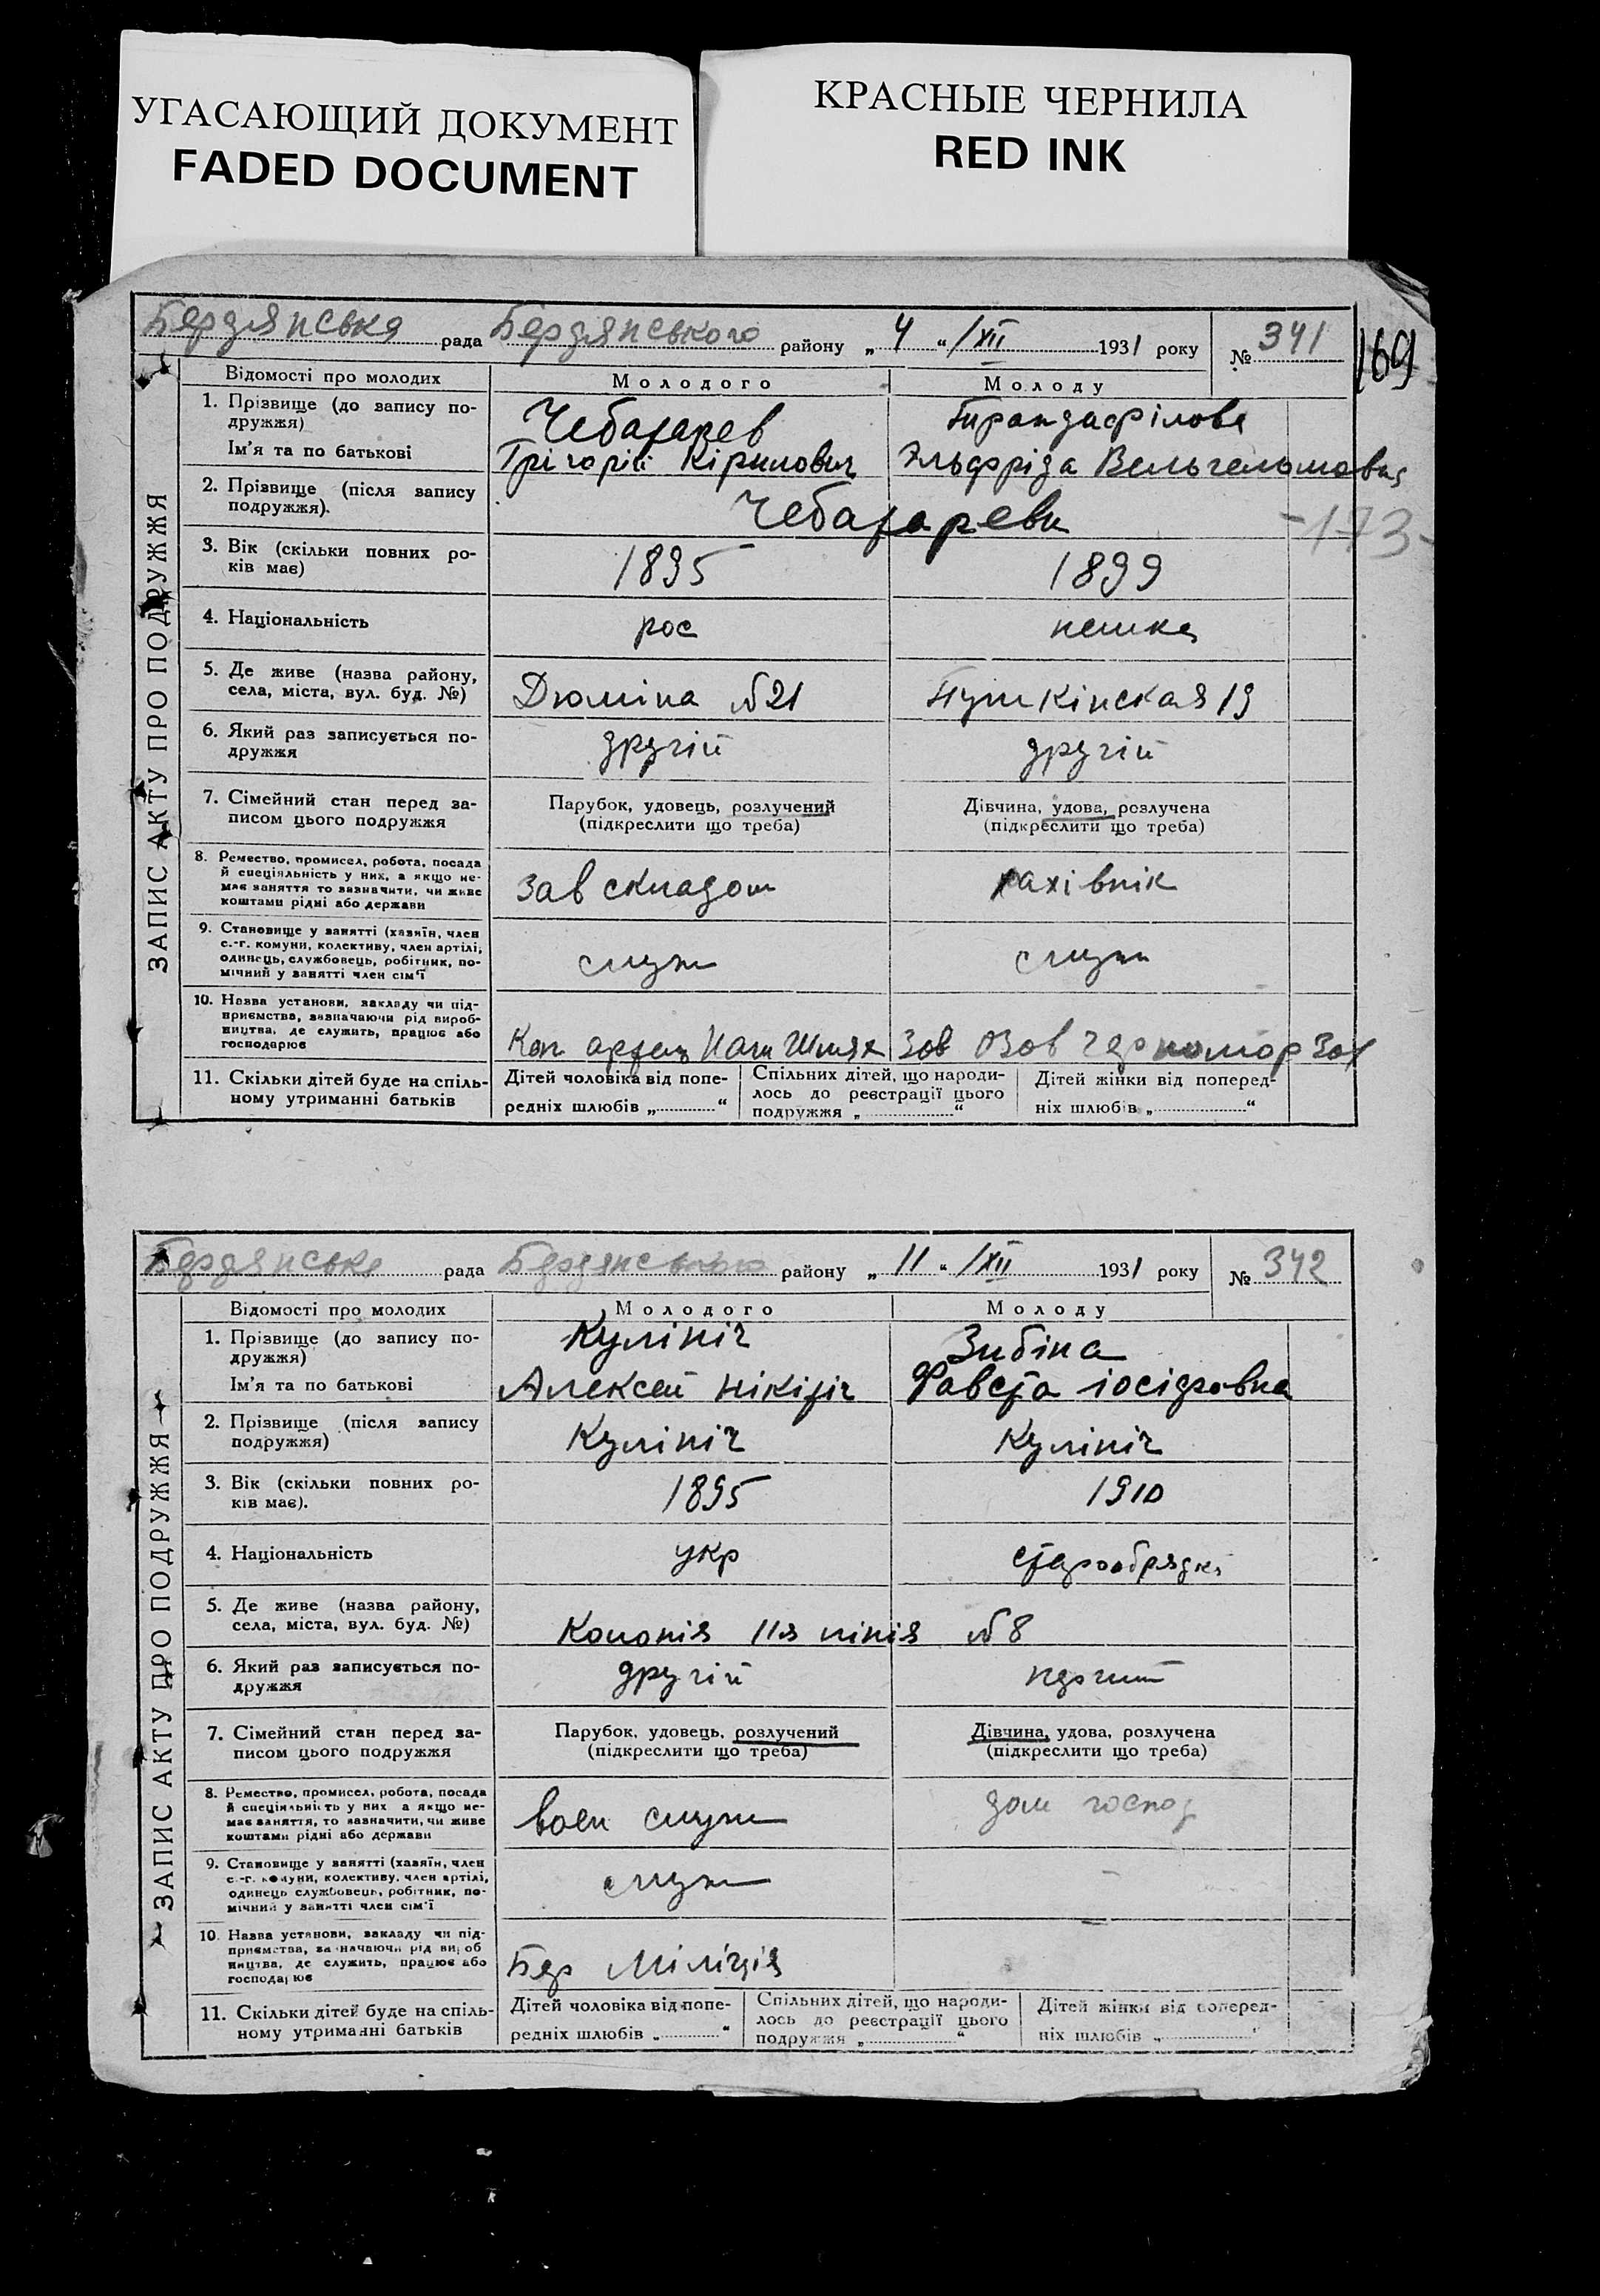 УГАСАЮЩИЙ ДОКУМЕНТ
FADED DOCUMENT
КРАСНЫЕ ЧЕРНИЛА
RED INK
Бердянська рада Бердянського району „4“ /XII 1931 року № 341
169
ЗАПИС АКТУ ПРО ПОДРУЖЖЯ
Відомості про молодих Молодого Молоду
1. Прізвище (до запису по-
дружжя) Чеботарев
Ім'я та по батькові Грігорій Кірилович Эльфріда Вельгельмовна
2. Прізвище (після запису
подружжя). Чеботареви
-173-
3. Вік (скільки повних ро-
ків має) 1895 1899
4. Національність рос немка
5. Де живе (назва району,
села, міста, вул. буд. №) Дюміна №21 Пушкінская 19
6. Який раз записується по-
дружжя другій другій
7. Сімейний стан перед за-
писом цього подружжя
Парубок, удовець, розлучений
(підкреслити що треба)
Дівчина, удова, розлучена
(підкреслити що треба)
8. Ремество, промисел, робота, посада
й спеціяльність у них, а якщо не-
має заняття то зазначити, чи живе
коштами рідні або держави
зав складом рахівнік
9. Становище у занятті (хазяїн, член
с.-г. комуни, колективу, член артілі,
одинець, службовець, робітник, по-
мічний у занятті член сім'ї
служ служ
10. Назва установи, закладу чи під-
приємства, зазначаючи рід вироб-
ництва, де служить, працює або
господарює
артель Наш Шлях Озов Черномор
11. Скільки дітей буде на спіль-
ному утриманні батьків
Дітей чоловіка від попе-
редніх шлюбів „ “
Спільних дітей, що народи-
лось до реєстрації цього
подружжя „ “
Дітей жінки від поперед-
ніх шлюбів „ “
Бердянська рада Бердянського району „11“ /XII 1931 року № 342
ЗАПИС АКТУ ПРО ПОДРУЖЖЯ
Відомості про молодих Молодого Молоду
1. Прізвище (до запису по-
дружжя) Кулініч Зибіна
Ім'я та по батькові Алексей Нікітіч Фавста іосіфовна
2. Прізвище (після запису
подружжя) Кулініч Кулініч
3. Вік (скільки повних ро-
ків має). 1895 1910
4. Національність укр старообрядка
5. Де живе (назва району,
села, міста, вул. буд. №) Колонія 11я лінія №8
6. Який раз записується по-
дружжя другій перший
7. Сімейний стан перед за-
писом цього подружжя
Парубок, удовець, розлучений
(підкреслити що треба)
Дівчина, удова, розлучена
(підкреслити що треба)
8. Ремество, промисел, робота, посада
й спеціяльність у них а якщо не-
має заняття, то зазначити, чи живе
коштами рідні або держави
воен служ дом господ
9. Становище у занятті (хазяїн, член
с.-г. комуни, колективу, член артілі,
одинець службовець, робітник, по-
мічний у занятті член сім'ї
служ
10. Назва установи, закладу чи під-
приємства, зазначаючи рід вироб
ництва, де служить, працює або
господарює
Бер Міліція
11. Скільки дітей буде на спіль-
ному утриманні батьків
Дітей чоловіка від попе-
редніх шлюбів „ “
Спільних дітей, що народи-
лось до реєстрації цього
подружжя „ “
Дітей жінки від поперед-
ніх шлюбів „ “